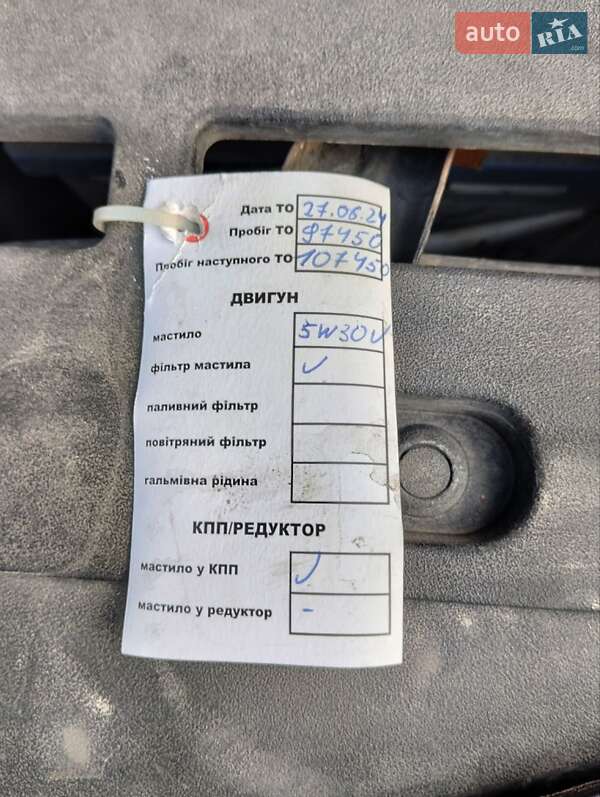 auto RIA
.com
Дата ТО 27.06.24
Пробіг ТО 97450
Пробіг наступного ТО 107450
ДВИГУН
мастило 5W30 ✓
фільтр мастила ✓
паливний фільтр
повітряний фільтр
гальмівна рідина
КПП/РЕДУКТОР
мастило у КПП ✓
мастило у редуктор -